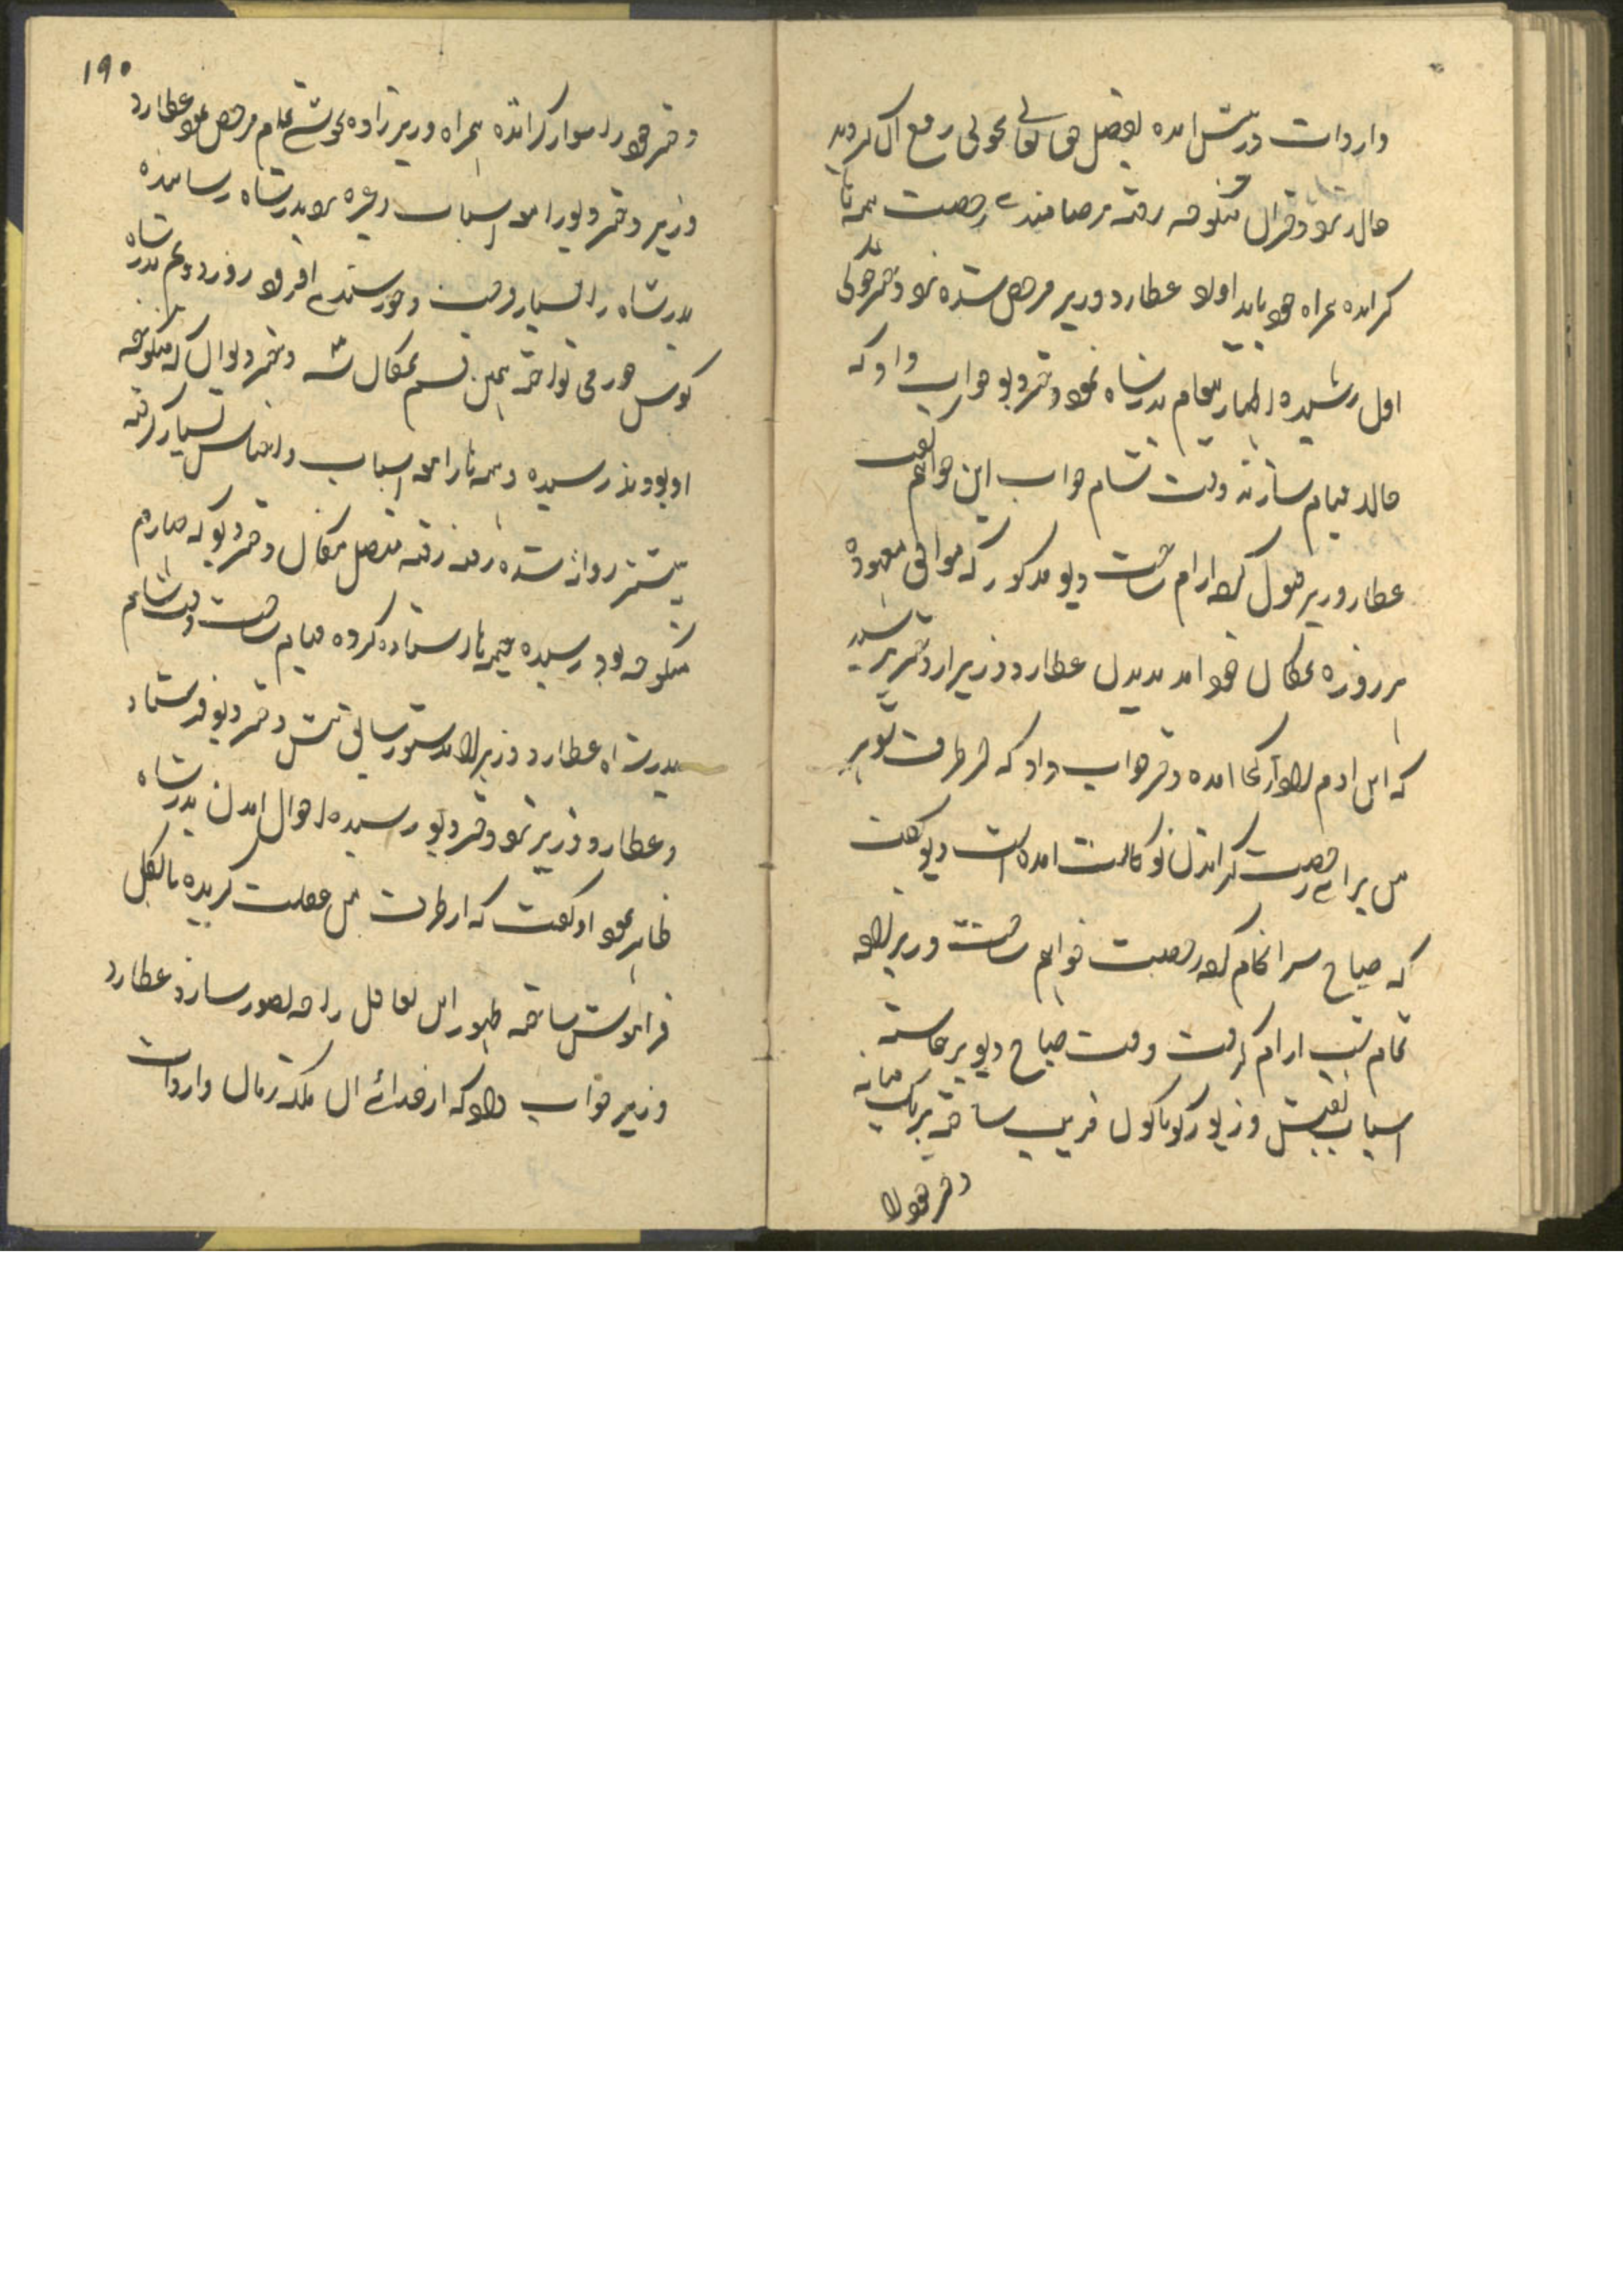 واردات درپیش امده بفضل حق تعالی بخوبی رفع ان گردید
حالا نزد دختران منکوحه رفته برضامندی رخصت همه ها
کرانده همراه خود باید اولا عطارد وزیر مرخص شده نزد دختر
اول رسیده اظهار پیغام بدرشاه نمود دختر دیو جواب داد که
حالا قیام سازند وقت شام جواب این خواهم گفت
عطارد وزیر قبول کرده ارام ساخت دیو مذکور که موافق معهود
هر روزه بمکان خود امد بدیدن عطارد وزیر از دختر پرسید
که این ادم زاد از کجا امده دختر جواب داد که از طرف شوهر
من برای رخصت کرانیدن بوکالت امده است دیو گفت
که صباح سرانجام کرده رخصت خواهم ساخت وزیر زاده
تمام شب ارام گرفت وقت صباح دیو برخاسته
اسباب نفیس و زیور گوناگون قریب ساخته بر یک میانه
دختر خود را
۱۹۰
دختر خود را سوار کرانده همراه وزیر زاده بخوشی تمام مرخص نمود عطارد
وزیر دختر دیو را مع اسباب وغیره نزد بدرشاه رسانیده
بدرشاه را بسیار فرحت و خورسندی افزود روز دویم بدرشاه
کوس خورمی نواخته همین قسم بمکان دختر دیوان که منکوحه
او بودند رسیده و همه ها را مع اسباب و اجناس بسیار گرفته
پیشتر روانه شده رفته رفته متصل مکان دختر دیو که چهارم
منکوحه بود رسیده خیمه ها ستاده کرده قیام ساخت وقت شام
بدرشاه عطارد وزیر را بدستور سابق پیش دختر دیو فرستاد
و عطارد وزیر نزد دختر دیو رسیده احوال امدن بدرشاه
ظاهر نمود او گفت که از طرف من غفلت گزیده بالکل
فراموش ساخته ظهور این تغافل را چه تصور سازد عطارد
وزیر جواب داد که از خدای ان ملکه زمان واردات